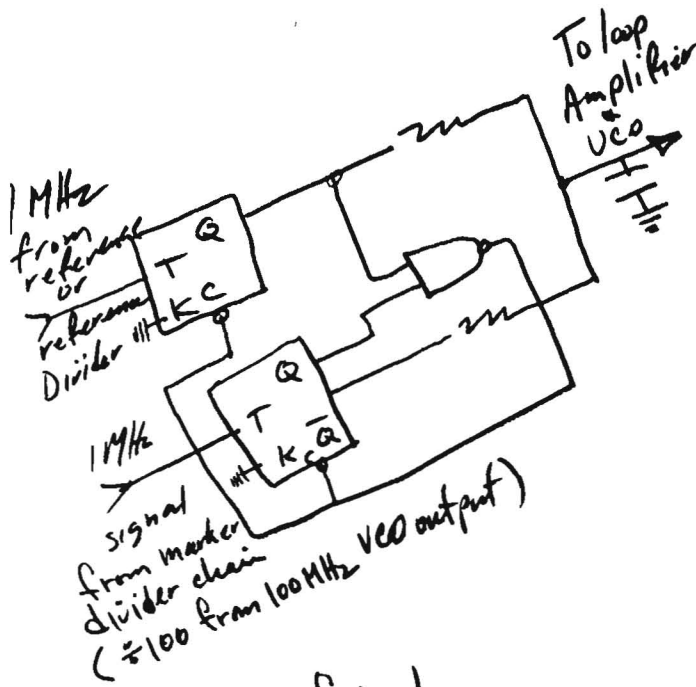 To loop
Amplifier
&
VCO
1 MHz
from
reference
or
reference
Divider
Q
T
K C
Q
T
Q̅
K C
1 MHz
signal
from marker
divider chain
(÷100 from 100MHz VCO output)